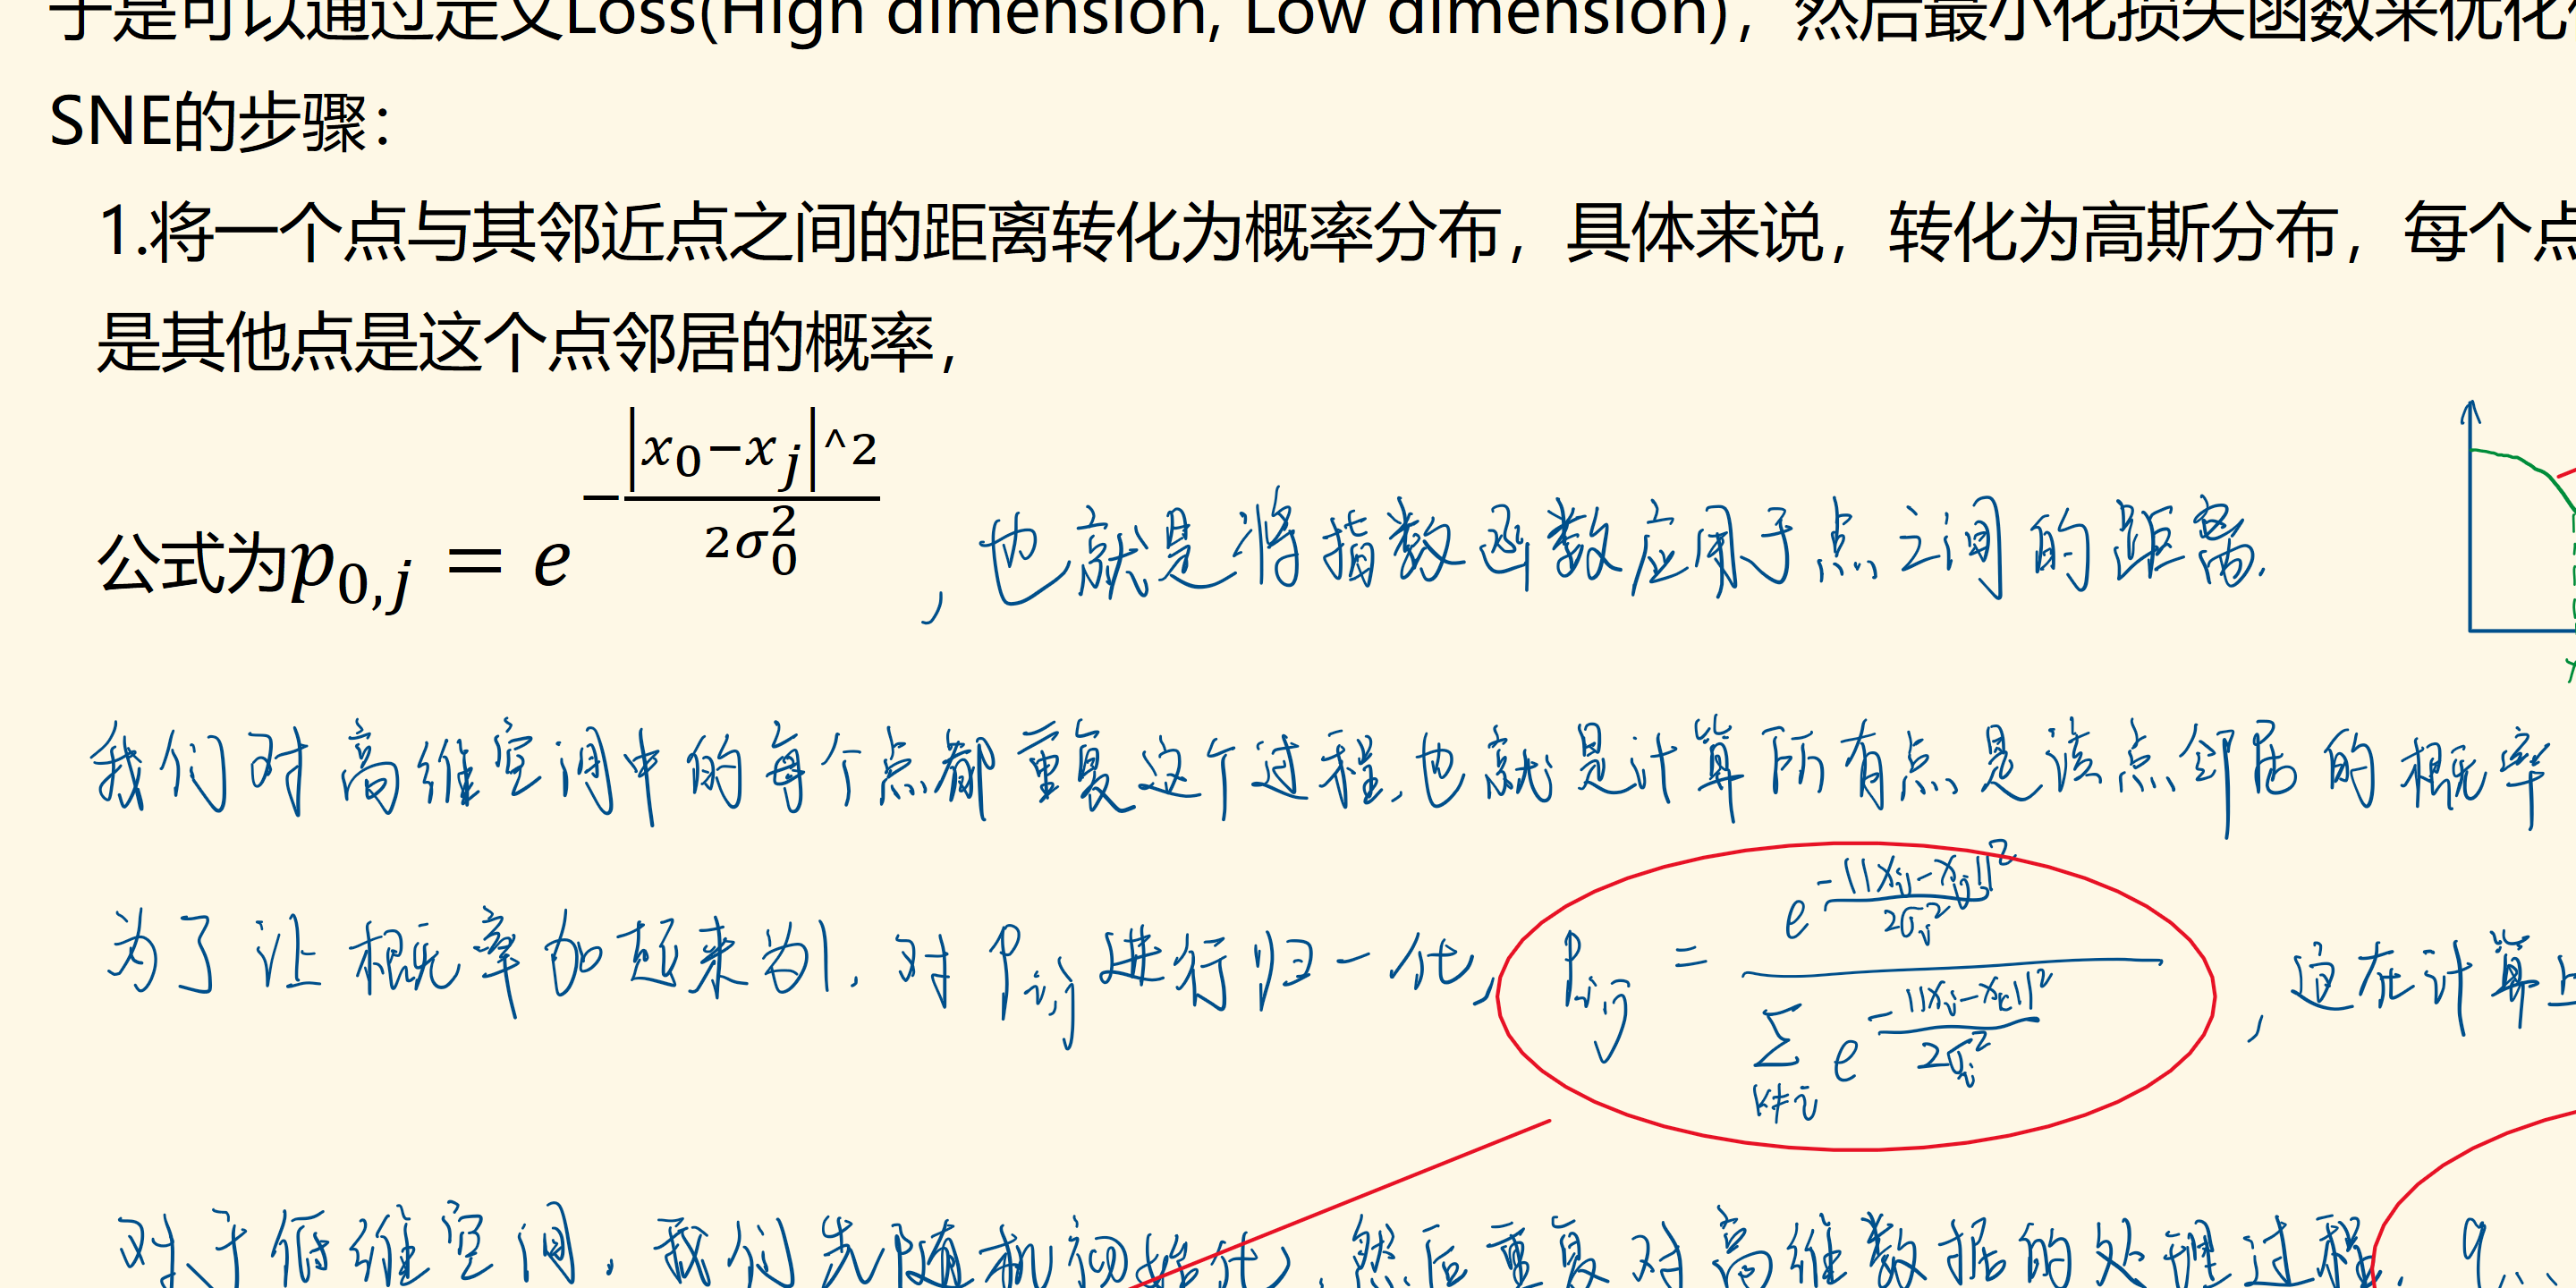 于是可以通过定义Loss(High dimension, Low dimension)，然后最小化损失函数来优化
SNE的步骤：
1.将一个点与其邻近点之间的距离转化为概率分布，具体来说，转化为高斯分布，每个点
是其他点是这个点邻居的概率，
公式为p_{0,j} = e^{-\frac{|x_0-x_j|^2}{2σ_0^2}}，也就是将指数函数应用于点之间的距离.
我们对高维空间中的每个点都重复这个过程,也就是计算所有点是该点邻居的概率
为了让概率加起来为1,对P_{i,j}进行归一化, P_{i,j} = \frac{e^{-\frac{||x_i-x_j||^2}{2σ_i^2}}}{\sum_{k≠i} e^{-\frac{||x_i-x_k||^2}{2σ_i^2}}}, 这在计算上
对于低维空间,我们先随机初始化,然后重复对高维数据的处理过程, q